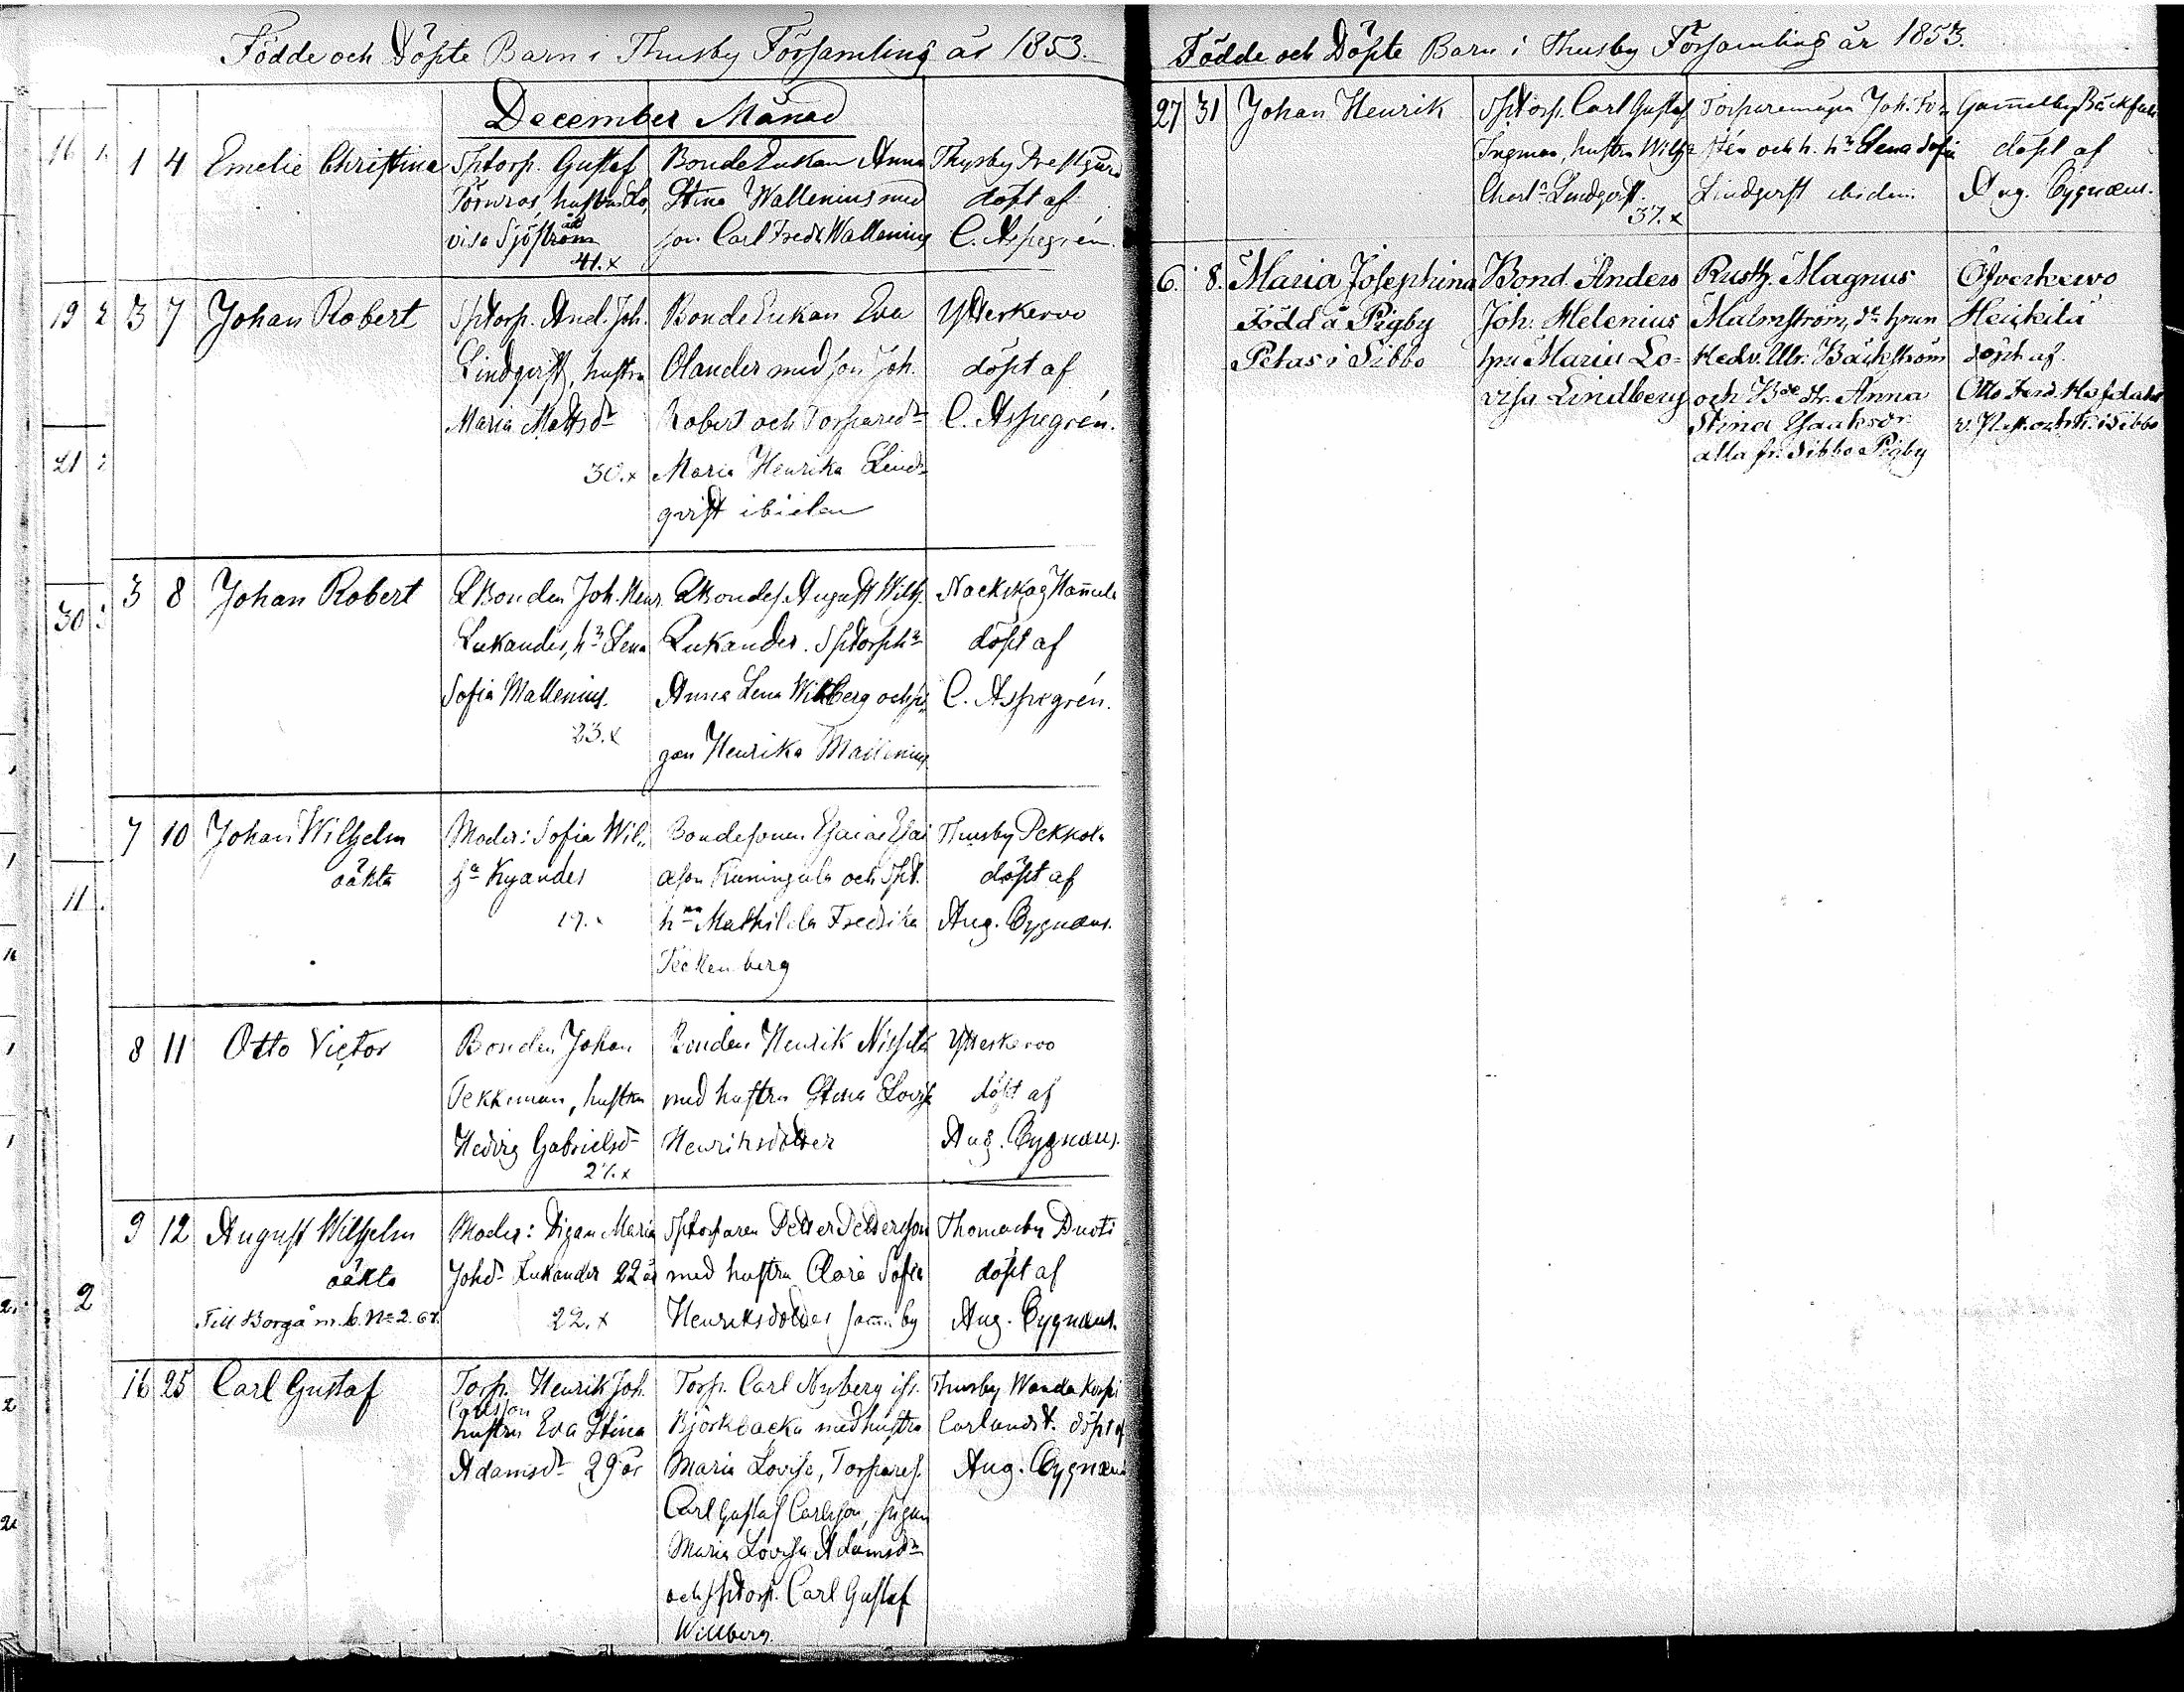 Födde och Döpte Barn i Thusby Församling år 1853.
December Månad
1 4 Emelie Christina
Sptorp. Gustaf
Törnros, hustru Lo
visa Sjöström
41.x
Bonde Enkan Anna
Stina Wallenius med
son Carl Fredr Wallenius
Thusby Prestgård
döpt af
C. Aspegrén.
3 7 Johan Robert
Sptorp. And. Joh.
Lindqvist, hustru
Maria Mattsdr
30.x
Bonde Enkan Eva
Olander med son Joh.
Robert och Torparedr
Maria Henrika Lind-
qvist ibidem
Ytterkervo
döpt af
C. Aspegrén.
3 8 Johan Robert
Bonden Joh. Henr.
Lukander, h. Lena
Sofia Mallenius.
23.x
Bondes. August Wilh.
Lukander. Sptorph
Anna Lena Wikberg och pi
gan Henrika Mallenius
Nackskog
döpt af
C. Aspegrén.
7 10 Johan Wilhelm
oäkta
Moder: Sofia Wil..
Kyander
19.
Bondesonen Esaias Esai
ason Kuningala och Spt.
hna Mathilda Fredrika
Teckenberg
Thusby Pekkola
döpt af
Aug. Cygnæus.
8 11 Otto Victor
Bonden Johan
Pekkeman, hustru
Hedvig Gabrielsdr
27.x
Bonden Henrik Nissilä
med hustru Stina Lovisa
Henriksdotter
Ytterkervo
döpt af
Aug. Cygnæus.
9 12 August Wilhelm
oäkta
Till Borgå m. b. No 2. 67.
Moder: Pigan Maria
Johdr Lukander 22 år
22.x
Sptorparen Petter Pettersson
med hustru Clara Sofia
Henriksdotter sam. by
Thomasby Duoti
döpt af
Aug. Cygnæus.
16 25 Carl Gustaf
Torp. Henrik Joh.
Carlsson
hustru Eva Stina
Adamsdr 29 år
Torp. Carl Nyberg ifr.
Björkbacka med hustru
Maria Lovisa, Torpares.
Carl Gustaf Carlsson, pigan
Maria Lovisa Adamsdr
och Sptorp. Carl Gustaf
Willberg.
Thusby Wanda Korpi
Carlundst. döpt af
Aug. Cygnæus
Födde och Döpte Barn i Thusby Församling år 1853.
27 31 Johan Henrik
Sptorp. Carl Gustaf
Ingman, hustru Wilh
Charl. Lindqvist.
37.x
Torparemågen Joh. To-
rstén och h. hr Lena Sofia
Lindqvist ibidem.
Gammelby Bäckfall
döpt af
Aug. Cygnæus.
6. 8. Maria Josephina
Född å Pigby
Petas i Sibbo
Bond. Anders
Joh. Helenius
hru Maria Lo-
visa Lindberg
Rusth. Magnus
Malmström, dr hrun
Hedv. Ulr. Bäckström
och Bde dr. Anna
Stina Isaksdr.
alla fr. Sibbo Pigby
Öfverkervo
Heikkilä
döpt af
Otto Ferd.
i Sibbo